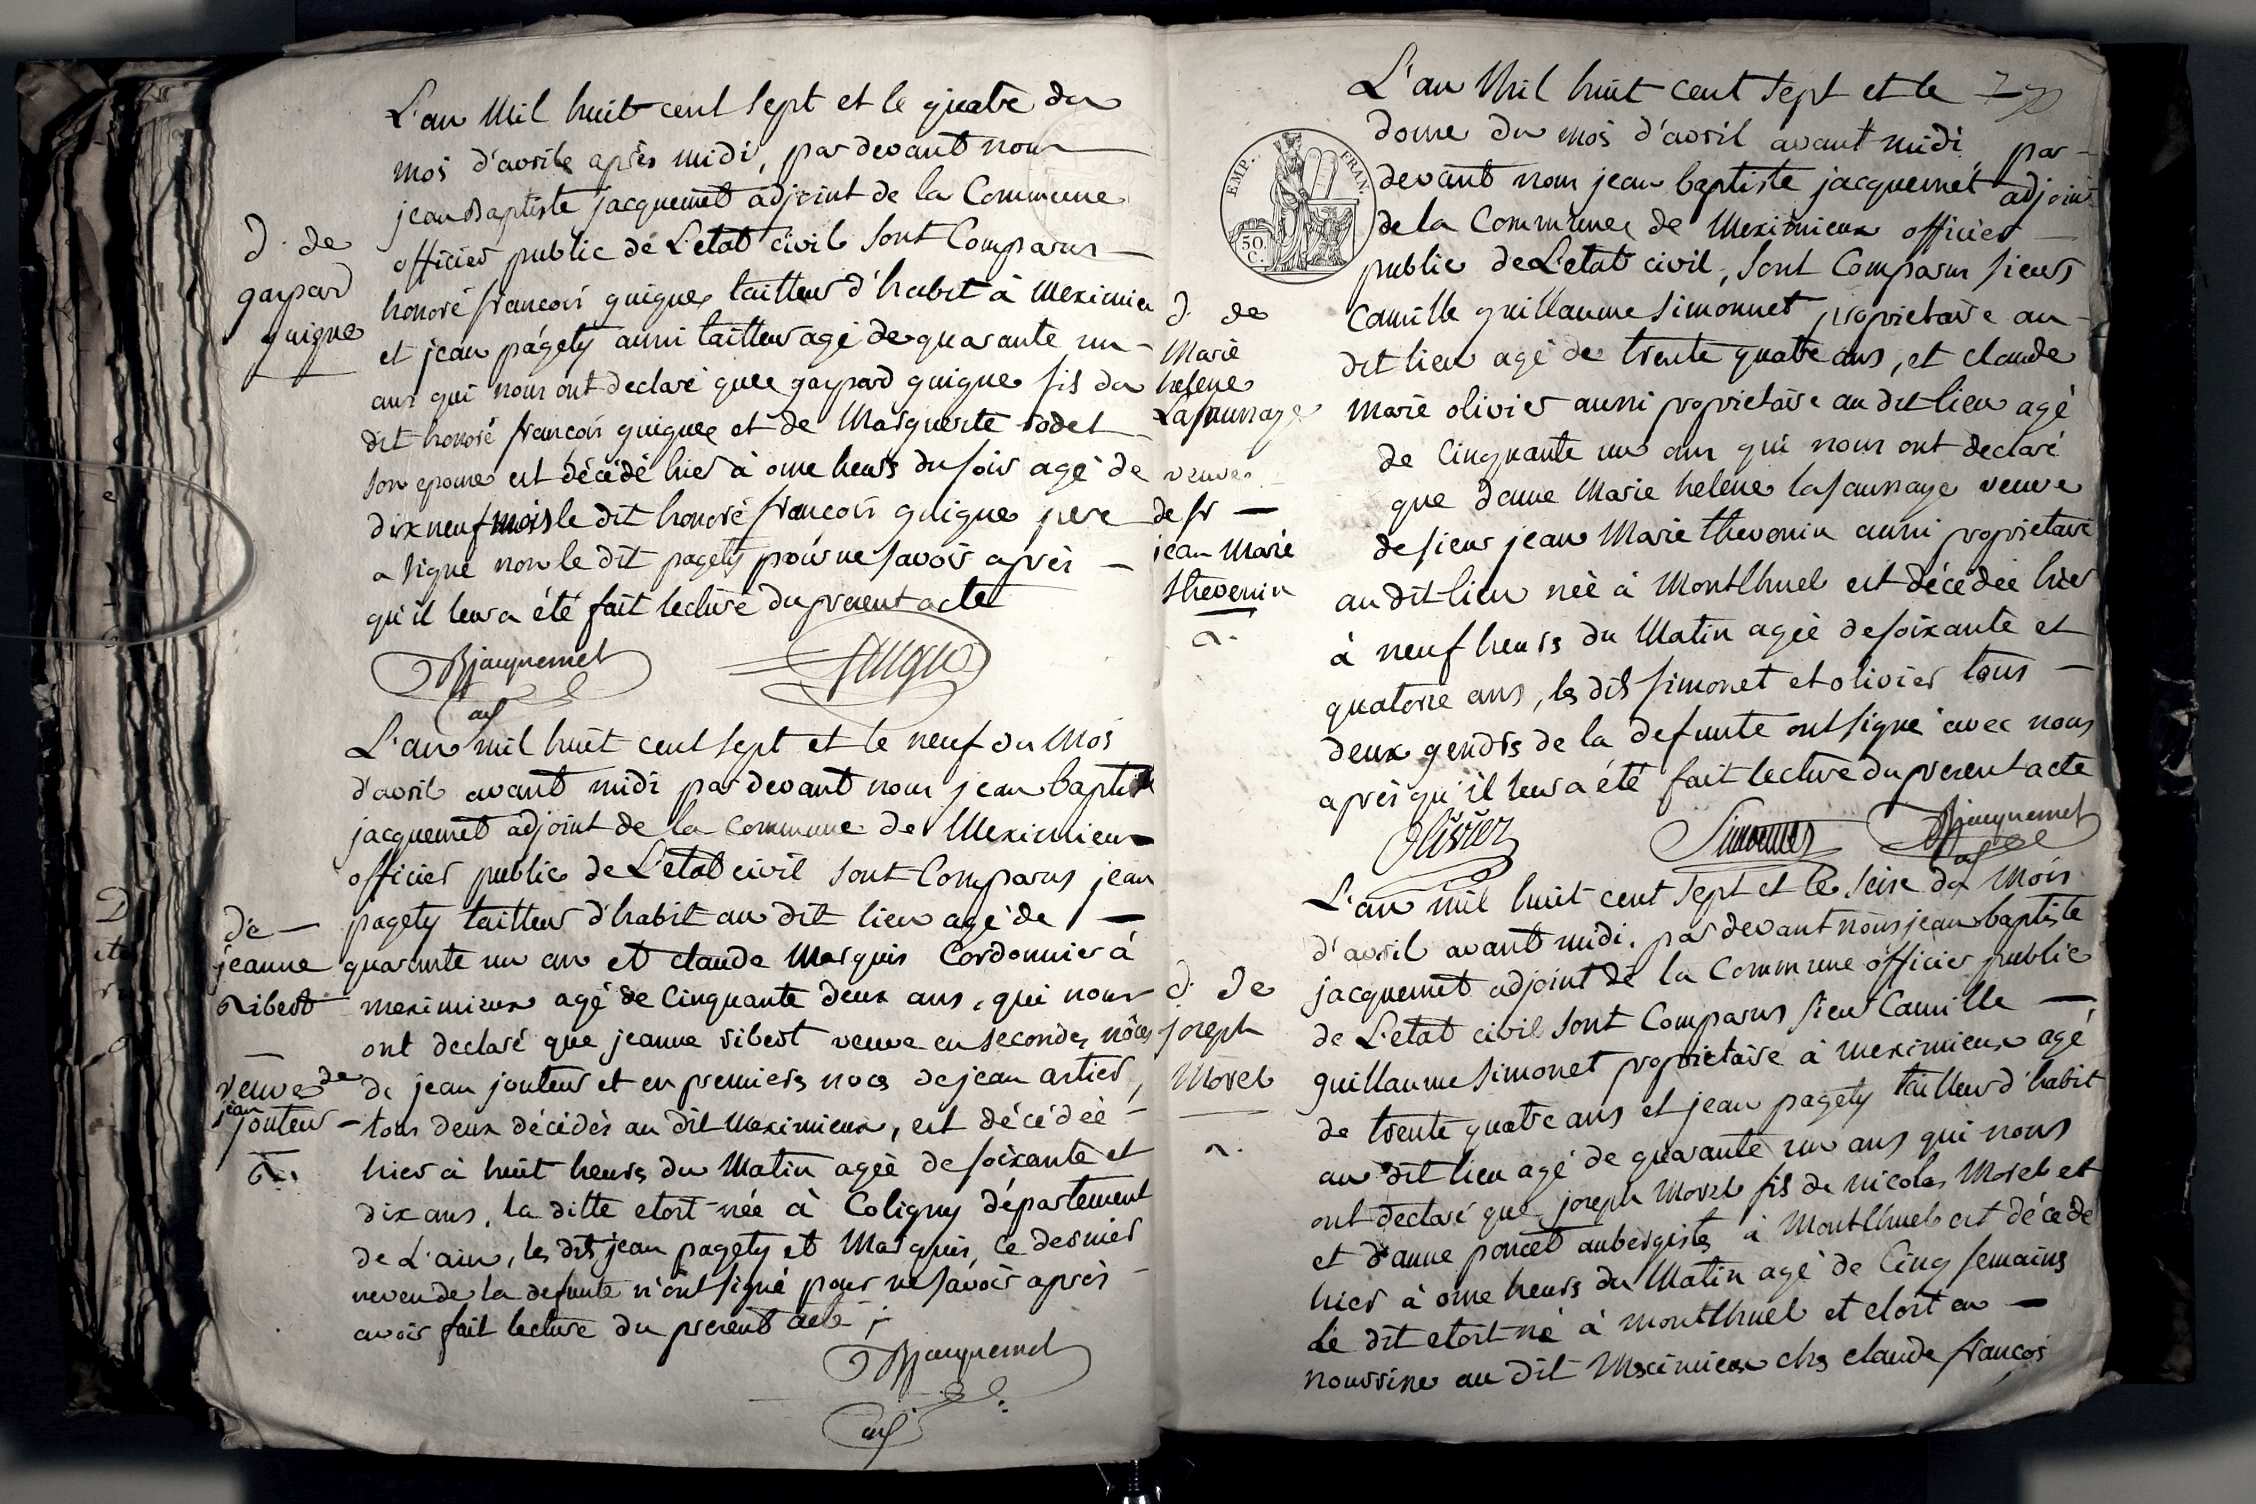 d. de
gaspard
guigue
L'an Mil huit cent sept et le quatre du
mois d'avrile après midi, par devant nous
jean Baptiste jacquemet adjoint de la Commune
officier public de L'etat civil sont Comparus
honoré francois guigue, tailleur d'habit à Meximieu
et jean pagety aussi tailleur agé de quarante un
ans qui nous ont declaré que gaspard guigue fils du
dit honoré françois guigue et de Marguerite rodet
son epouse est décédé hier à onze heurs du soir agé de
dix neuf mois le dit honoré françois guigue pere
a signé non le dit pagety pour ne savoir après
qu'il leur a été fait lecture du present acte
Bjacquemet
adj
guigue
de
jeanne
Ribest
veuve de
jean
jouteur
L'an mil huit cent sept et le neuf du Mois
d'avril avant midi par devant nous jean baptiste
jacquemet adjoint de la commune de Meximieux
officier public de L'etat civil sont Comparus jean
pagety tailleur d'habit au dit lieu agé de
quarante un an et claude Marquis Cordonnier à
meximieux agé de Cinquante deux ans, qui nous
ont declaré que jeanne ribest veuve en secondes nôces
de jean jouteur et en premiers noces de jean artier,
tous deux décédés au dit Meximieux, est décédée
hier à huit heurs du Matin agée de soixante et
dix ans, la ditte etoit née à Coligny département
de L'ain, les dits jean pagety et Marquis, ce dernier
neveu de la defunte n'ont signé pour ne savoir après
avoir fait lecture du present acte
Bjacquemet
adj
77
EMP. FRAN.
50.
C.
d. de
Marie
helene
Lasaunaye
veuve
de sr
jean Marie
thevenin
L'an Mil huit cent sept et le
douze du mois d'avril avant midi par
devant nous jean baptiste jacquemet adjoint
de la Commune de Meximieux officier
public de L'etat civil, sont Comparus sieurs
Camille guillaume simonnet, proprietaire au
dit lieu agé de trente quatre ans, et claude
marie olivier aussi proprietaire au dit lieu agé
de Cinquante un ans qui nous ont declaré
que dame Marie helene lasaunaye veuve
de sieur jean Marie thevenin aussi proprietaire
au dit lieu née à Montlhuel est décédée hier
à neuf heurs du Matin agée de soixante et
quatorze ans, les dits simonet et olivier tous
deux gendrs de la defunte ont signé avec nous
après qu'il leur a été fait lecture du present acte
Olivier
Simonnet
Bjacquemet
adj
d. de
joseph
Morel
L'an mil huit cent sept et le seize du Mois
d'avril avant midi. par devant nous jean baptiste
jacquemet adjoint de la Commune officier public
de L'etat civil sont Comparus sieur Camille
guillaume simonet proprietaire à meximieux agé
de trente quatre ans et jean pagety tailleur d'habit
au dit lieu agé de quarante un ans qui nous
ont declaré que joseph Morel fils de nicolas Morel et
et d'anne poncet aubergistes à Montlhuel est décédé
hier à onze heurs du Matin agé de Cinq semains
le dit etoit né à montlhuel et etoit en
nourrise au dit Meximieux chs claude françois